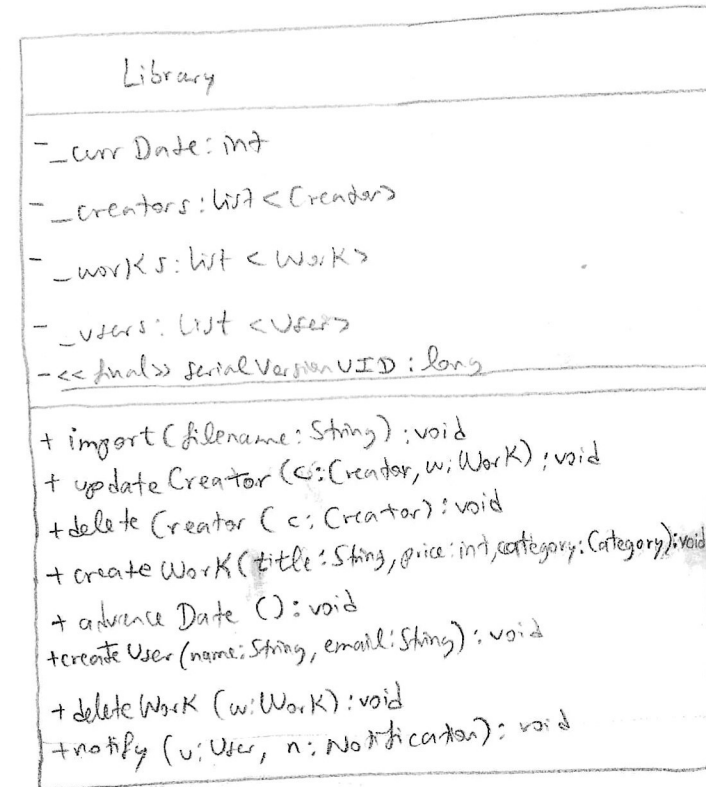 Library
- _currDate: int
- _creators: list <Creator>
- _works: list <Work>
- _users: List <User>
- << final >> serialVersionUID : long
+ import (filename: String) : void
+ updateCreator (c: Creator, w: Work) : void
+ deleteCreator (c: Creator) : void
+ createWork (title: String, price: int, category: Category): void
+ advanceDate () : void
+ createUser (name: String, email: String) : void
+ deleteWork (w: Work) : void
+ notify (u: User, n: Notification) : void